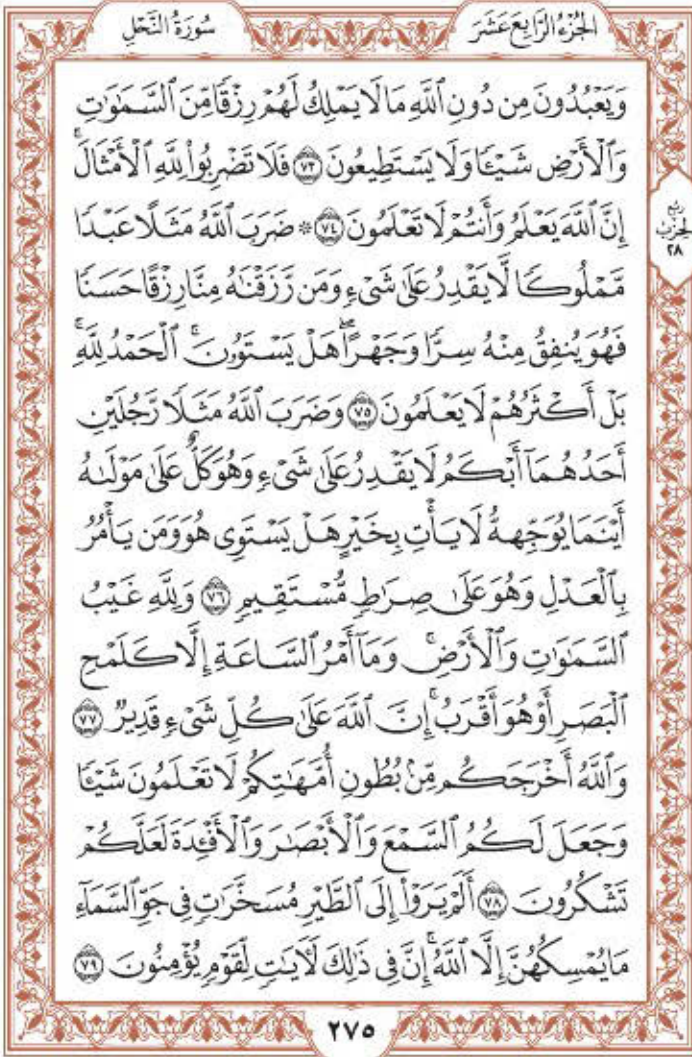 الجُزْءُ الرَّابِعَ عَشَرَ
سُورَةُ النَّحْلِ
وَيَعْبُدُونَ مِن دُونِ ٱللَّهِ مَا لَا يَمْلِكُ لَهُمْ رِزْقًا مِّنَ ٱلسَّمَٰوَٰتِ
وَٱلْأَرْضِ شَيْـًٔا وَلَا يَسْتَطِيعُونَ ۝٧٣ فَلَا تَضْرِبُوا۟ لِلَّهِ ٱلْأَمْثَالَ ۚ
إِنَّ ٱللَّهَ يَعْلَمُ وَأَنتُمْ لَا تَعْلَمُونَ ۝٧٤ ۞ ضَرَبَ ٱللَّهُ مَثَلًا عَبْدًا
مَّمْلُوكًا لَّا يَقْدِرُ عَلَىٰ شَىْءٍ وَمَن رَّزَقْنَٰهُ مِنَّا رِزْقًا حَسَنًا
فَهُوَ يُنفِقُ مِنْهُ سِرًّا وَجَهْرًا ۖ هَلْ يَسْتَوُۥنَ ۚ ٱلْحَمْدُ لِلَّهِ ۚ
بَلْ أَكْثَرُهُمْ لَا يَعْلَمُونَ ۝٧٥ وَضَرَبَ ٱللَّهُ مَثَلًا رَّجُلَيْنِ
أَحَدُهُمَآ أَبْكَمُ لَا يَقْدِرُ عَلَىٰ شَىْءٍ وَهُوَ كَلٌّ عَلَىٰ مَوْلَىٰهُ
أَيْنَمَا يُوَجِّههُّ لَا يَأْتِ بِخَيْرٍ هَلْ يَسْتَوِى هُوَ وَمَن يَأْمُرُ
بِٱلْعَدْلِ وَهُوَ عَلَىٰ صِرَٰطٍ مُّسْتَقِيمٍ ۝٧٦ وَلِلَّهِ غَيْبُ
ٱلسَّمَٰوَٰتِ وَٱلْأَرْضِ ۚ وَمَآ أَمْرُ ٱلسَّاعَةِ إِلَّا كَلَمْحِ
ٱلْبَصَرِ أَوْ هُوَ أَقْرَبُ ۚ إِنَّ ٱللَّهَ عَلَىٰ كُلِّ شَىْءٍ قَدِيرٌ ۝٧٧
وَٱللَّهُ أَخْرَجَكُم مِّنۢ بُطُونِ أُمَّهَٰتِكُمْ لَا تَعْلَمُونَ شَيْـًٔا
وَجَعَلَ لَكُمُ ٱلسَّمْعَ وَٱلْأَبْصَٰرَ وَٱلْأَفْـِٔدَةَ لَعَلَّكُمْ
تَشْكُرُونَ ۝٧٨ أَلَمْ يَرَوْا۟ إِلَى ٱلطَّيْرِ مُسَخَّرَٰتٍ فِى جَوِّ ٱلسَّمَآءِ
مَا يُمْسِكُهُنَّ إِلَّا ٱللَّهُ ۗ إِنَّ فِى ذَٰلِكَ لَءَايَٰتٍ لِّقَوْمٍ يُؤْمِنُونَ ۝٧٩
رُبْع
الحِزْبِ
٢٨
٢٧٥